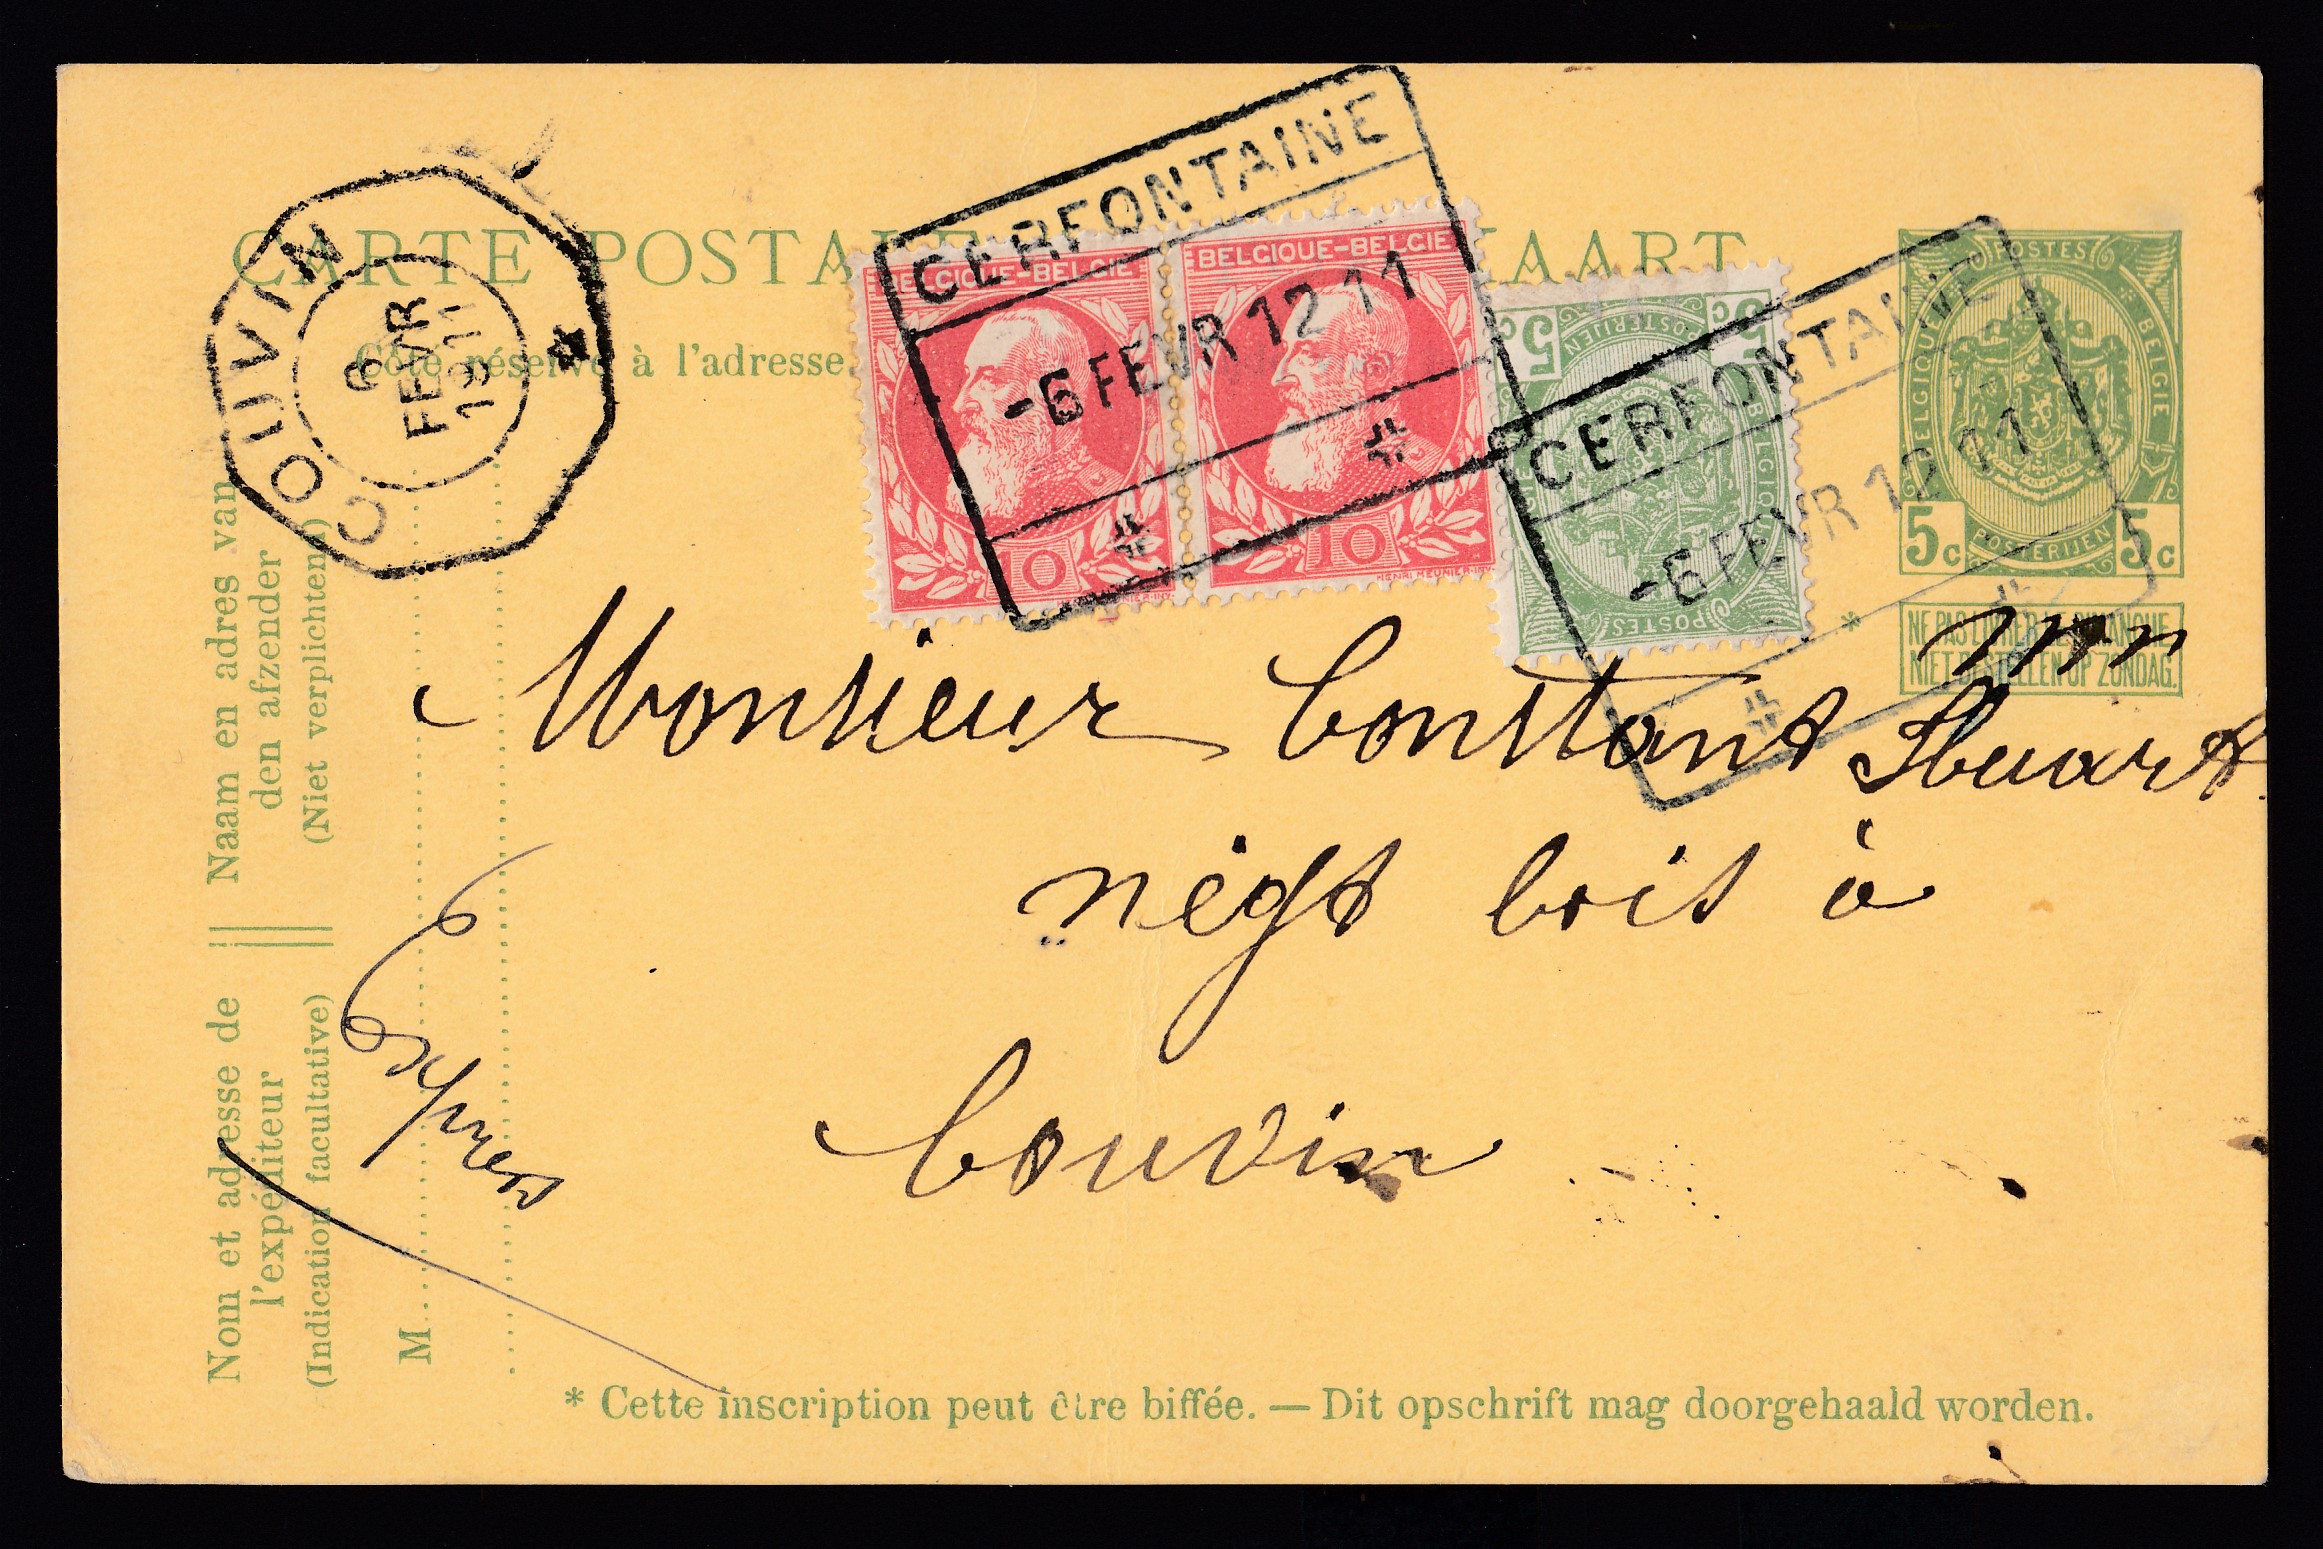 CARTE POSTA KAART
Côté réservé à l'adresse.
COUVIN
6
FEVR
1911
CERFONTAINE
-6 FEVR 12 11
BELGIQUE-BELGIE
10
BELGIQUE-BELGIE
10
HENRI MEUNIER-INV.
CERFONTAINE
-6 FEVR 12 11
5 c
5 c
POSTERIJEN
POSTES
BELGIQUE
POSTES
BELGIQUE
BELGIE
POSTERIJEN
5 c
5 c
NE PAS LIVRER LE DIMANCHE
NIET BESTELLEN OP ZONDAG.
*
Monsieur Constant
négt bois à
Couvin
Expres
Naam en adres van
den afzender
(Niet verplichtend)
Nom et adresse de
l'expéditeur
(Indication facultative)
M
* Cette inscription peut être biffée. — Dit opschrift mag doorgehaald worden.